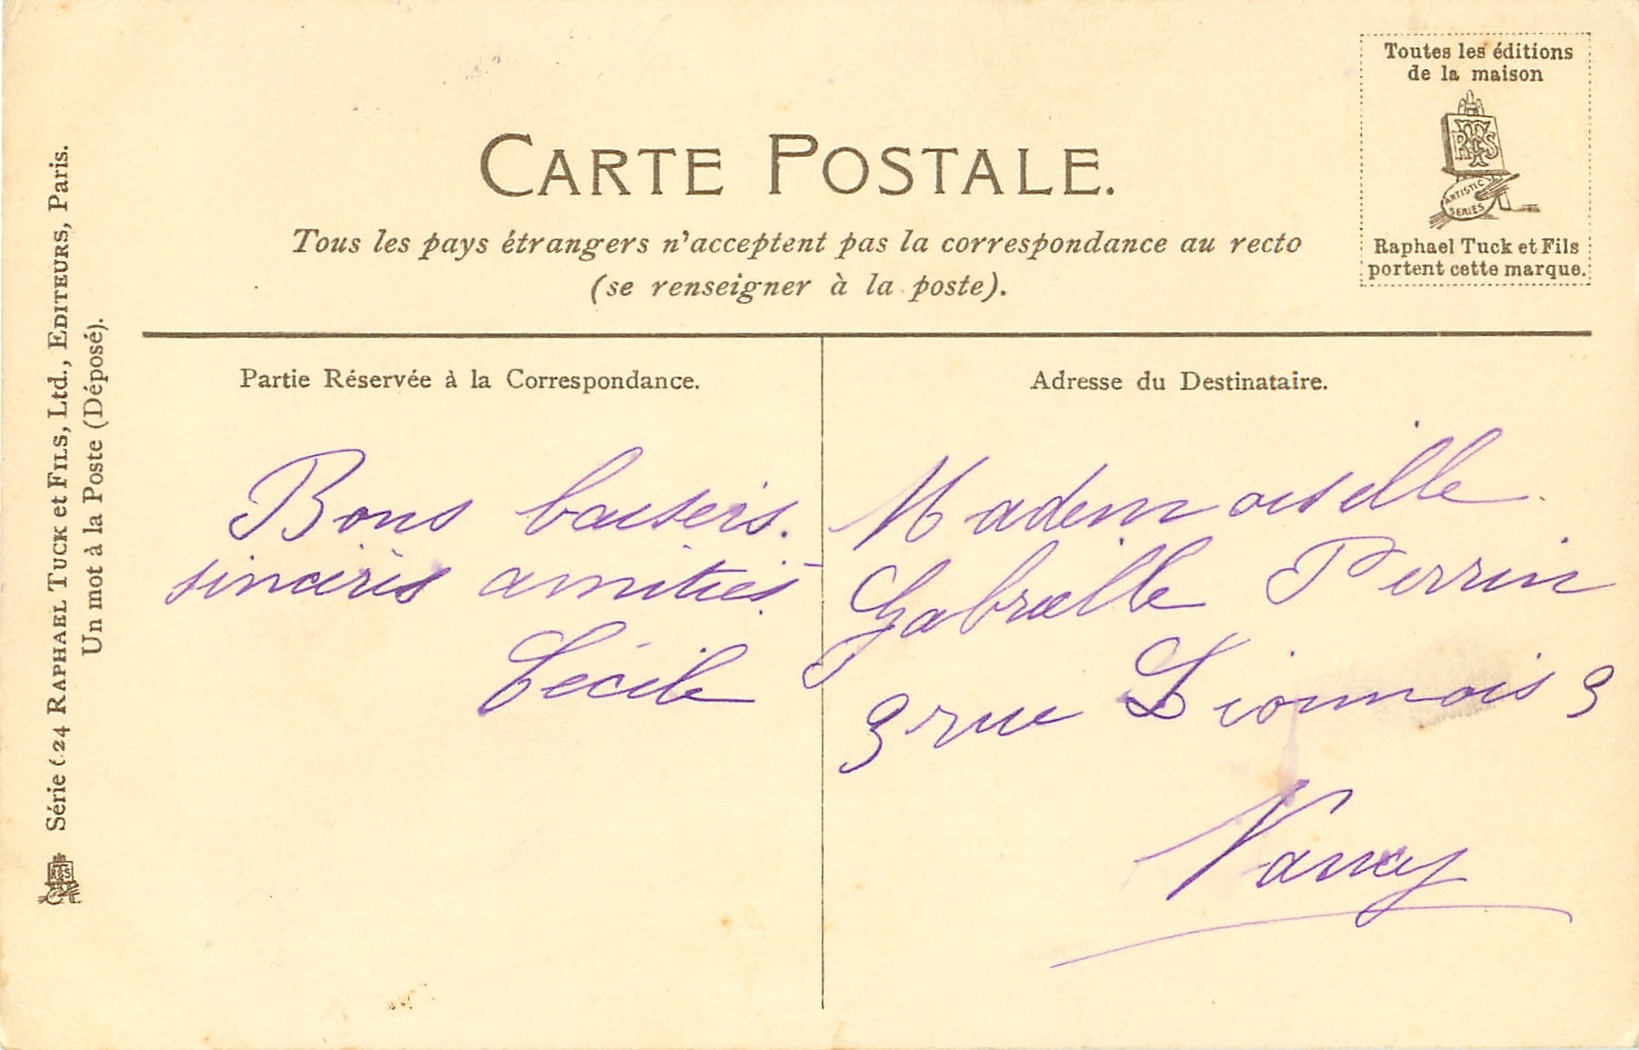 CARTE POSTALE.
Tous les pays étrangers n'acceptent pas la correspondance au recto
(se renseigner à la poste).
Toutes les éditions
de la maison
ARTISTIC
SERIES
Raphael Tuck et Fils
portent cette marque.
Partie Réservée à la Correspondance.
Bons baisers.
sincères amitiés
Cécile
Adresse du Destinataire.
Mademoiselle
Gabrielle Perrin
3 rue Lionnois 3
Nancy
Série 24 RAPHAEL TUCK et FILS, Ltd., EDITEURS, Paris.
Un mot à la Poste (Déposé).